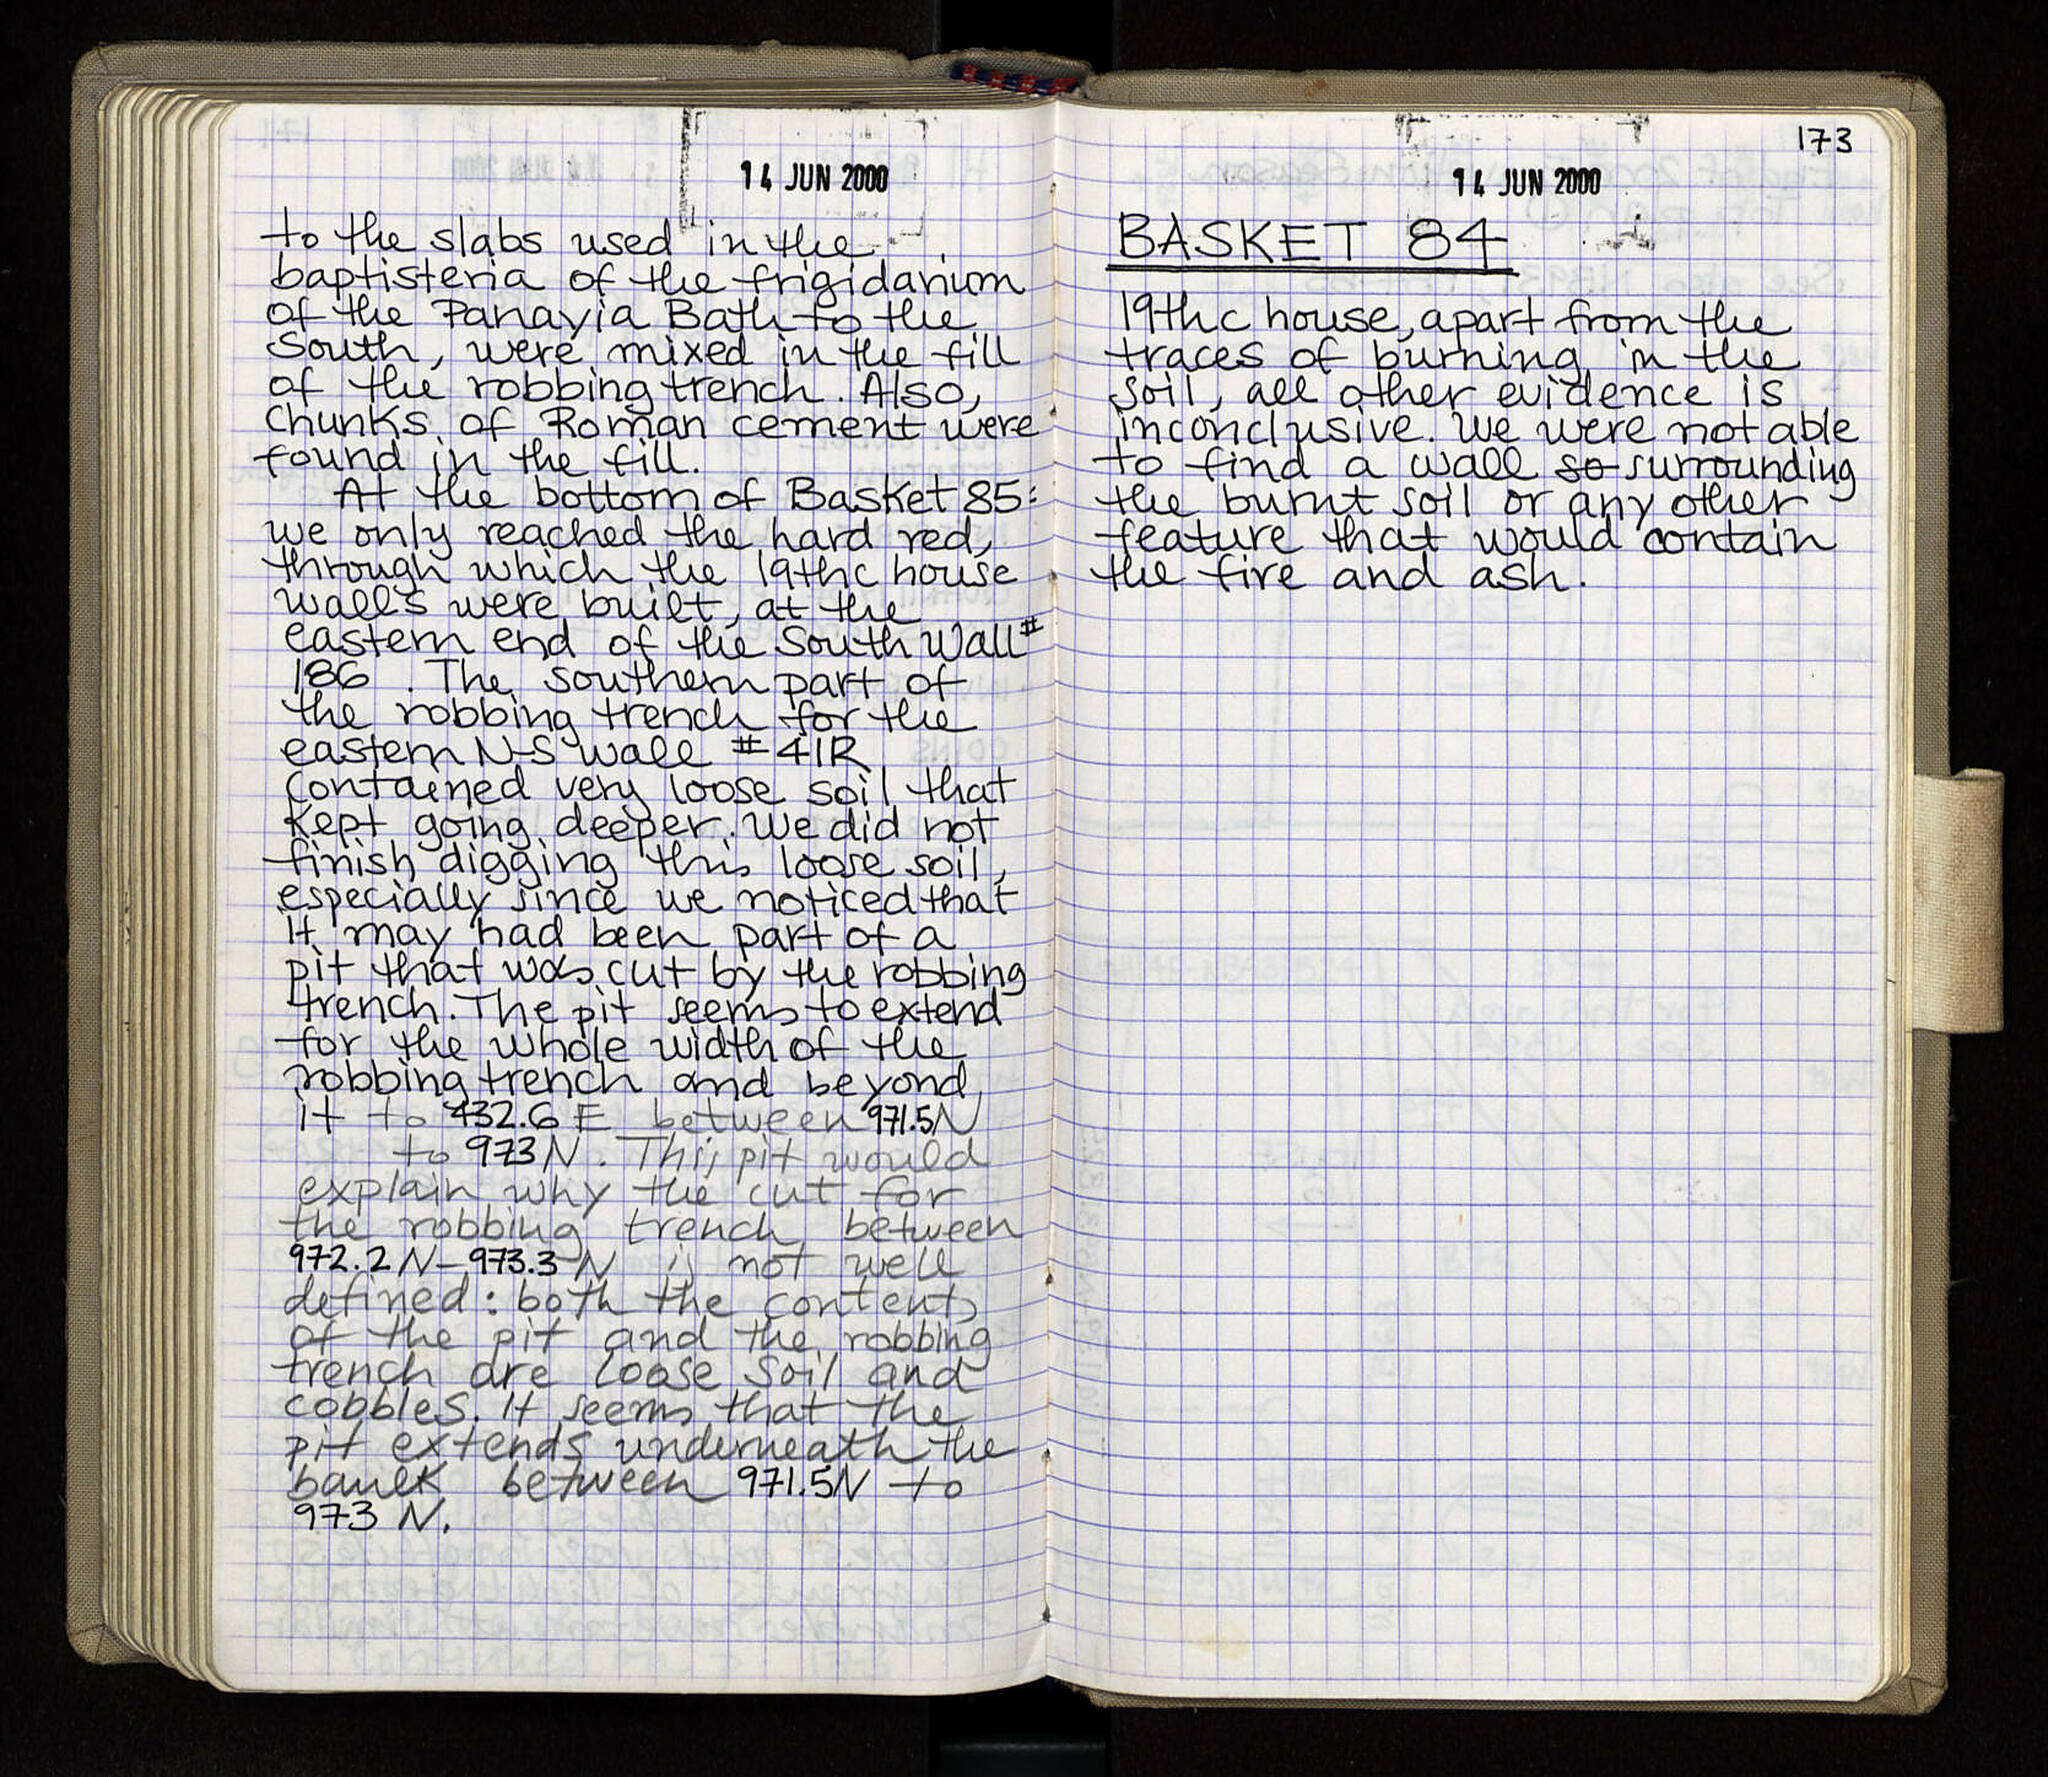 14 JUN 2000
to the slabs used in the
baptisteria of the frigidarium
of the Panayia Bath to the
South, were mixed in the fill
of the robbing trench. Also,
chunks of Roman cement were
found in the fill.
At the bottom of Basket 85:
we only reached the hard red,
through which the 19thc house
walls were built, at the
eastern end of the South Wall #
186. The southern part of
the robbing trench for the
eastern N-S wall #41R
contained very loose soil that
kept going deeper. We did not
finish digging this loose soil,
especially since we noticed that
it may had been part of a
pit that was cut by the robbing
trench. The pit seems to extend
for the whole width of the
robbing trench and beyond
it to 432.6 E between 971.5N
to 973 N. This pit would
explain why the cut for
the robbing trench between
972.2 N-973.3 N is not well
defined: both the contents
of the pit and the robbing
trench are loose soil and
cobbles. It seems that the
pit extends underneath the
baulk between 971.5N to
973 N.
173
14 JUN 2000
BASKET 84
19thc house, apart from the
traces of burning in the
soil, all other evidence is
inconclusive. We were not able
to find a wall so surrounding
the burnt soil or any other
feature that would contain
the fire and ash.